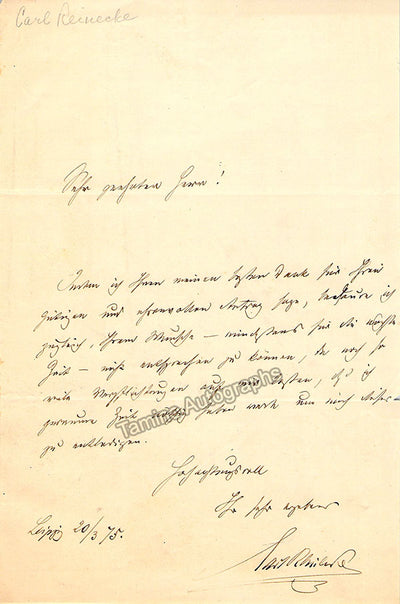 Carl Reinecke
Sehr geehrter Herr!
Indem ich Ihnen meinen besten Dank für Ihren
gütigen und ehrenvollen Antrag sage, bedaure ich
zugleich, Ihrem Wunsche – mindestens für die nächste
Zeit – nicht entsprechen zu können, da noch so
viele Verpflichtungen auf mir lasten, daß ich
geraume Zeit nöthig haben werde um mich dieser
zu entledigen.
Tamino Autographs
Hochachtungsvoll
Ihr sehr ergebener
Leipzig 20/3 75.
Carl Reinecke